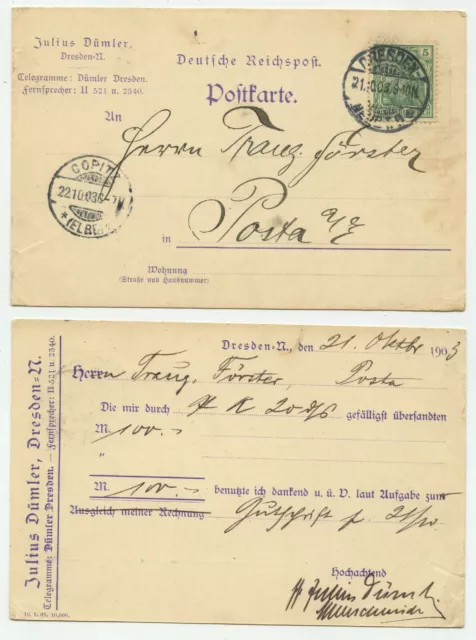 Julius Dümler,
Dresden-N.
Telegramme: Dümler Dresden.
Fernsprecher: II 521 u. 2540.
Deutsche Reichspost.
Postkarte.
5
DRESDEN
21.10.03
NEUST.
An
Herrn Traug. Förster
COPITZ
22.10.03
(ELBE)
in Posta a/E
Wohnung
(Straße und Hausnummer)
Julius Dümler, Dresden-N.
Telegramme: Dümler Dresden. — Fernsprecher: II 521 u. 2540.
Dresden-N., den 21. Oktbr 1903
Herrn Traug. Förster, Posta
Die mir durch gefälligst übersandten
M. 100.-
"
M. 100.- benutzte ich dankend u. ü. V. laut Aufgabe zum
Ausgleich meiner Rechnung Gutschrift p. 21/10
Hochachtend
Julius Dümler